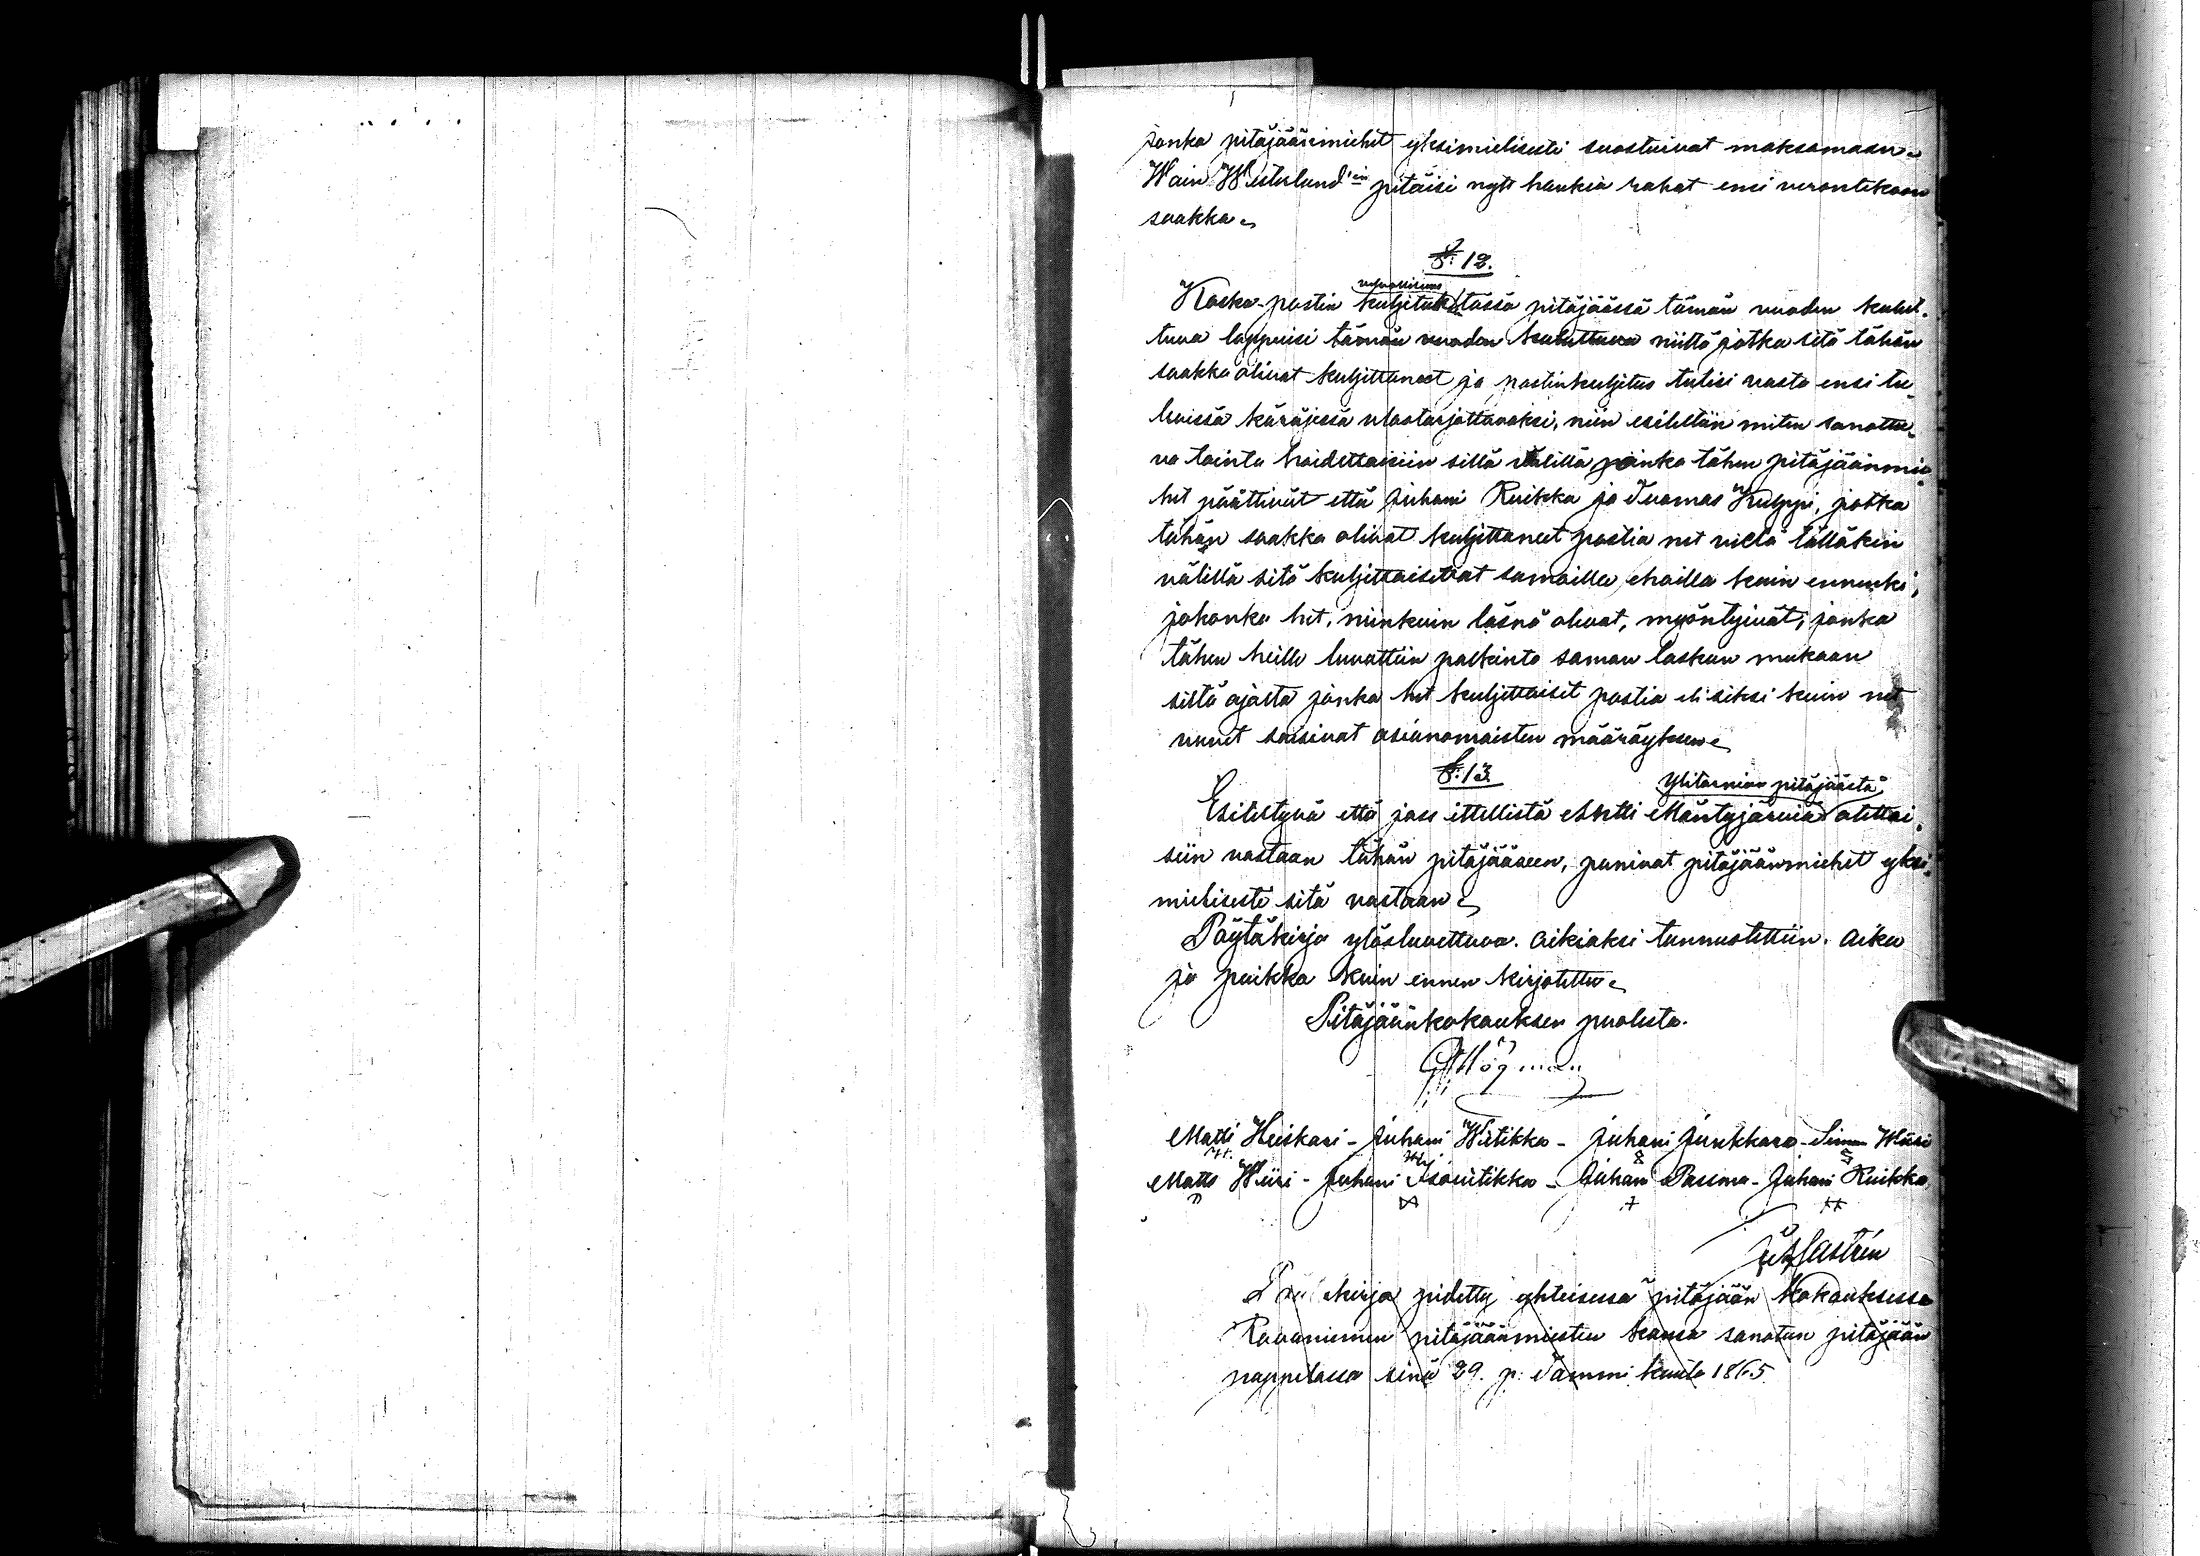 jonka pitäjäänmiehet yksimielisesti suostuivat maksamaan.
Wain Westerlund'in pitäisi nyt hankia rahat ensi verontekoon
saakka.
§: 12.
Koska postin kuljetus tässä pitäjäässä tämän vuoden kulut-
tua loppuisi tämän vuoden kuluttua niiltä jotka sitä tähän
saakka olivat kuljettaneet ja postinkuljetus tulisi vasta ensi tu-
levissa käräjissä ulostarjottavaksi, niin esiteltiin miten sanottu-
va tointa hoidettaisiin sillä välillä jonka tähen pitäjäänmie-
het päättivät että Juhani Ruikka ja Tuomas Kulppi, jotka
tähän saakka olivat kuljettaneet postia net vielä tälläkin
välillä sitä kuljettaisivat samoilla ehoilla kuin ennenki,
johonka het, niinkuin läsnä olevat, myöntyivät, jonka
tähen heille luvattiin palkinto saman laskun mukaan
siltä ajalta jonka het kuljettaisit postia eli siksi kuin net
uuvet saisivat asianomaisten määräyksen.
§: 13.
Ylitornion pitäjäästä
Esitettynä että itsellistä Antti Mäntyjärviä otettai-
siin vastaan tähän pitäjääseen, panivat pitäjäänmiehet yksi-
mielisesti sitä vastaan.
Pöytäkirja ylösluettuva. oikiaksi tunnustettiin. Aika
ja paikka kuin ennen kirjotettu.
Pitäjäänkokouksen puolesta.
Högman
Matti Heiskari - Juhani Wiitikko - Juhani Junkkara - Simon Wiiri
Matti Wiiri - Juhani Isoviitikko - Juhani Pasma - Juhani Ruikka
Castrén
kirja pidetty yhteisessä pitäjään kokouksessa
Rovaniemen pitäjäänmiesten kansa sanotun pitäjään
pappilassa sinä 29. p. Tammi kuuta 1865